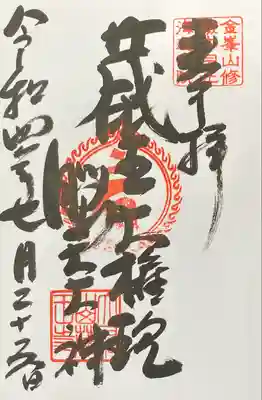 金峯山修
奉拝
蔵王権現
脳天大神
令和四年七月二十五日